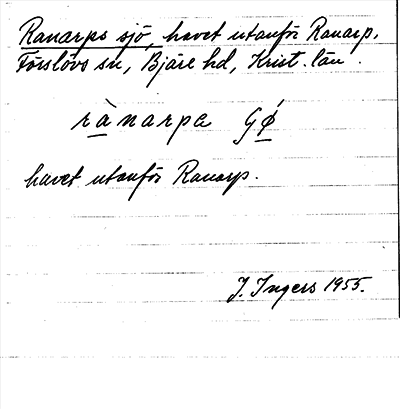 Ranarps sjö, havet utanför Ranarp,
Förslövs sn, Bjäre hd, Krist. län.
rànarpa gǿ
havet utanför Ranarp.
J. Ingers 1955.